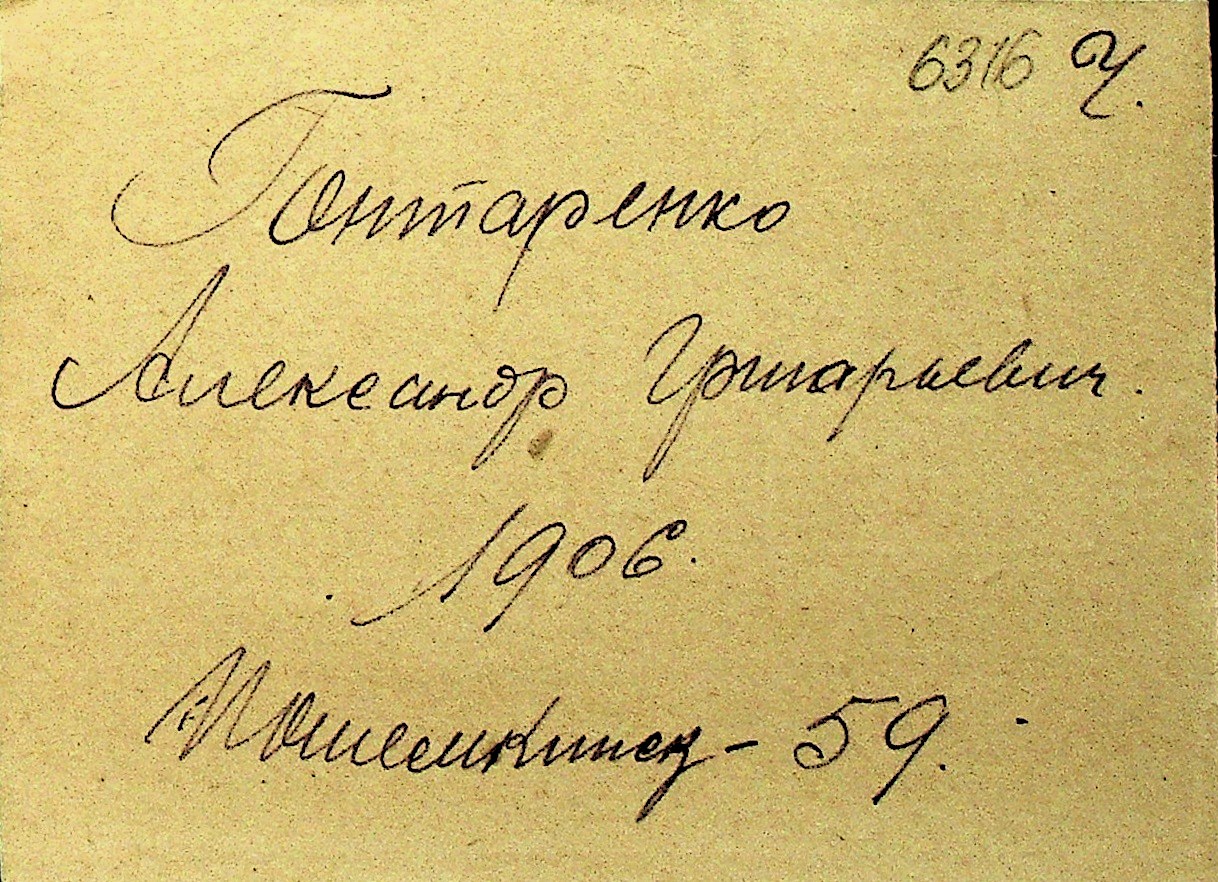 6316 У.
Гонтаренко
Александр Григарьевич.
1906.
Потемкинск – 59.